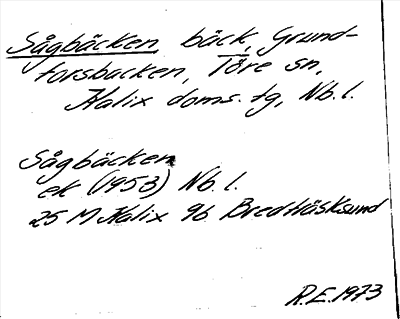 Sågbäcken, bäck, Grund-
forsbacken, Töre sn,
Kalix doms. tg, Nb. l.
Sågbäcken
ek (1953) Nb. l.
25 M Kalix 9b Bredträsksund
R.E. 1973